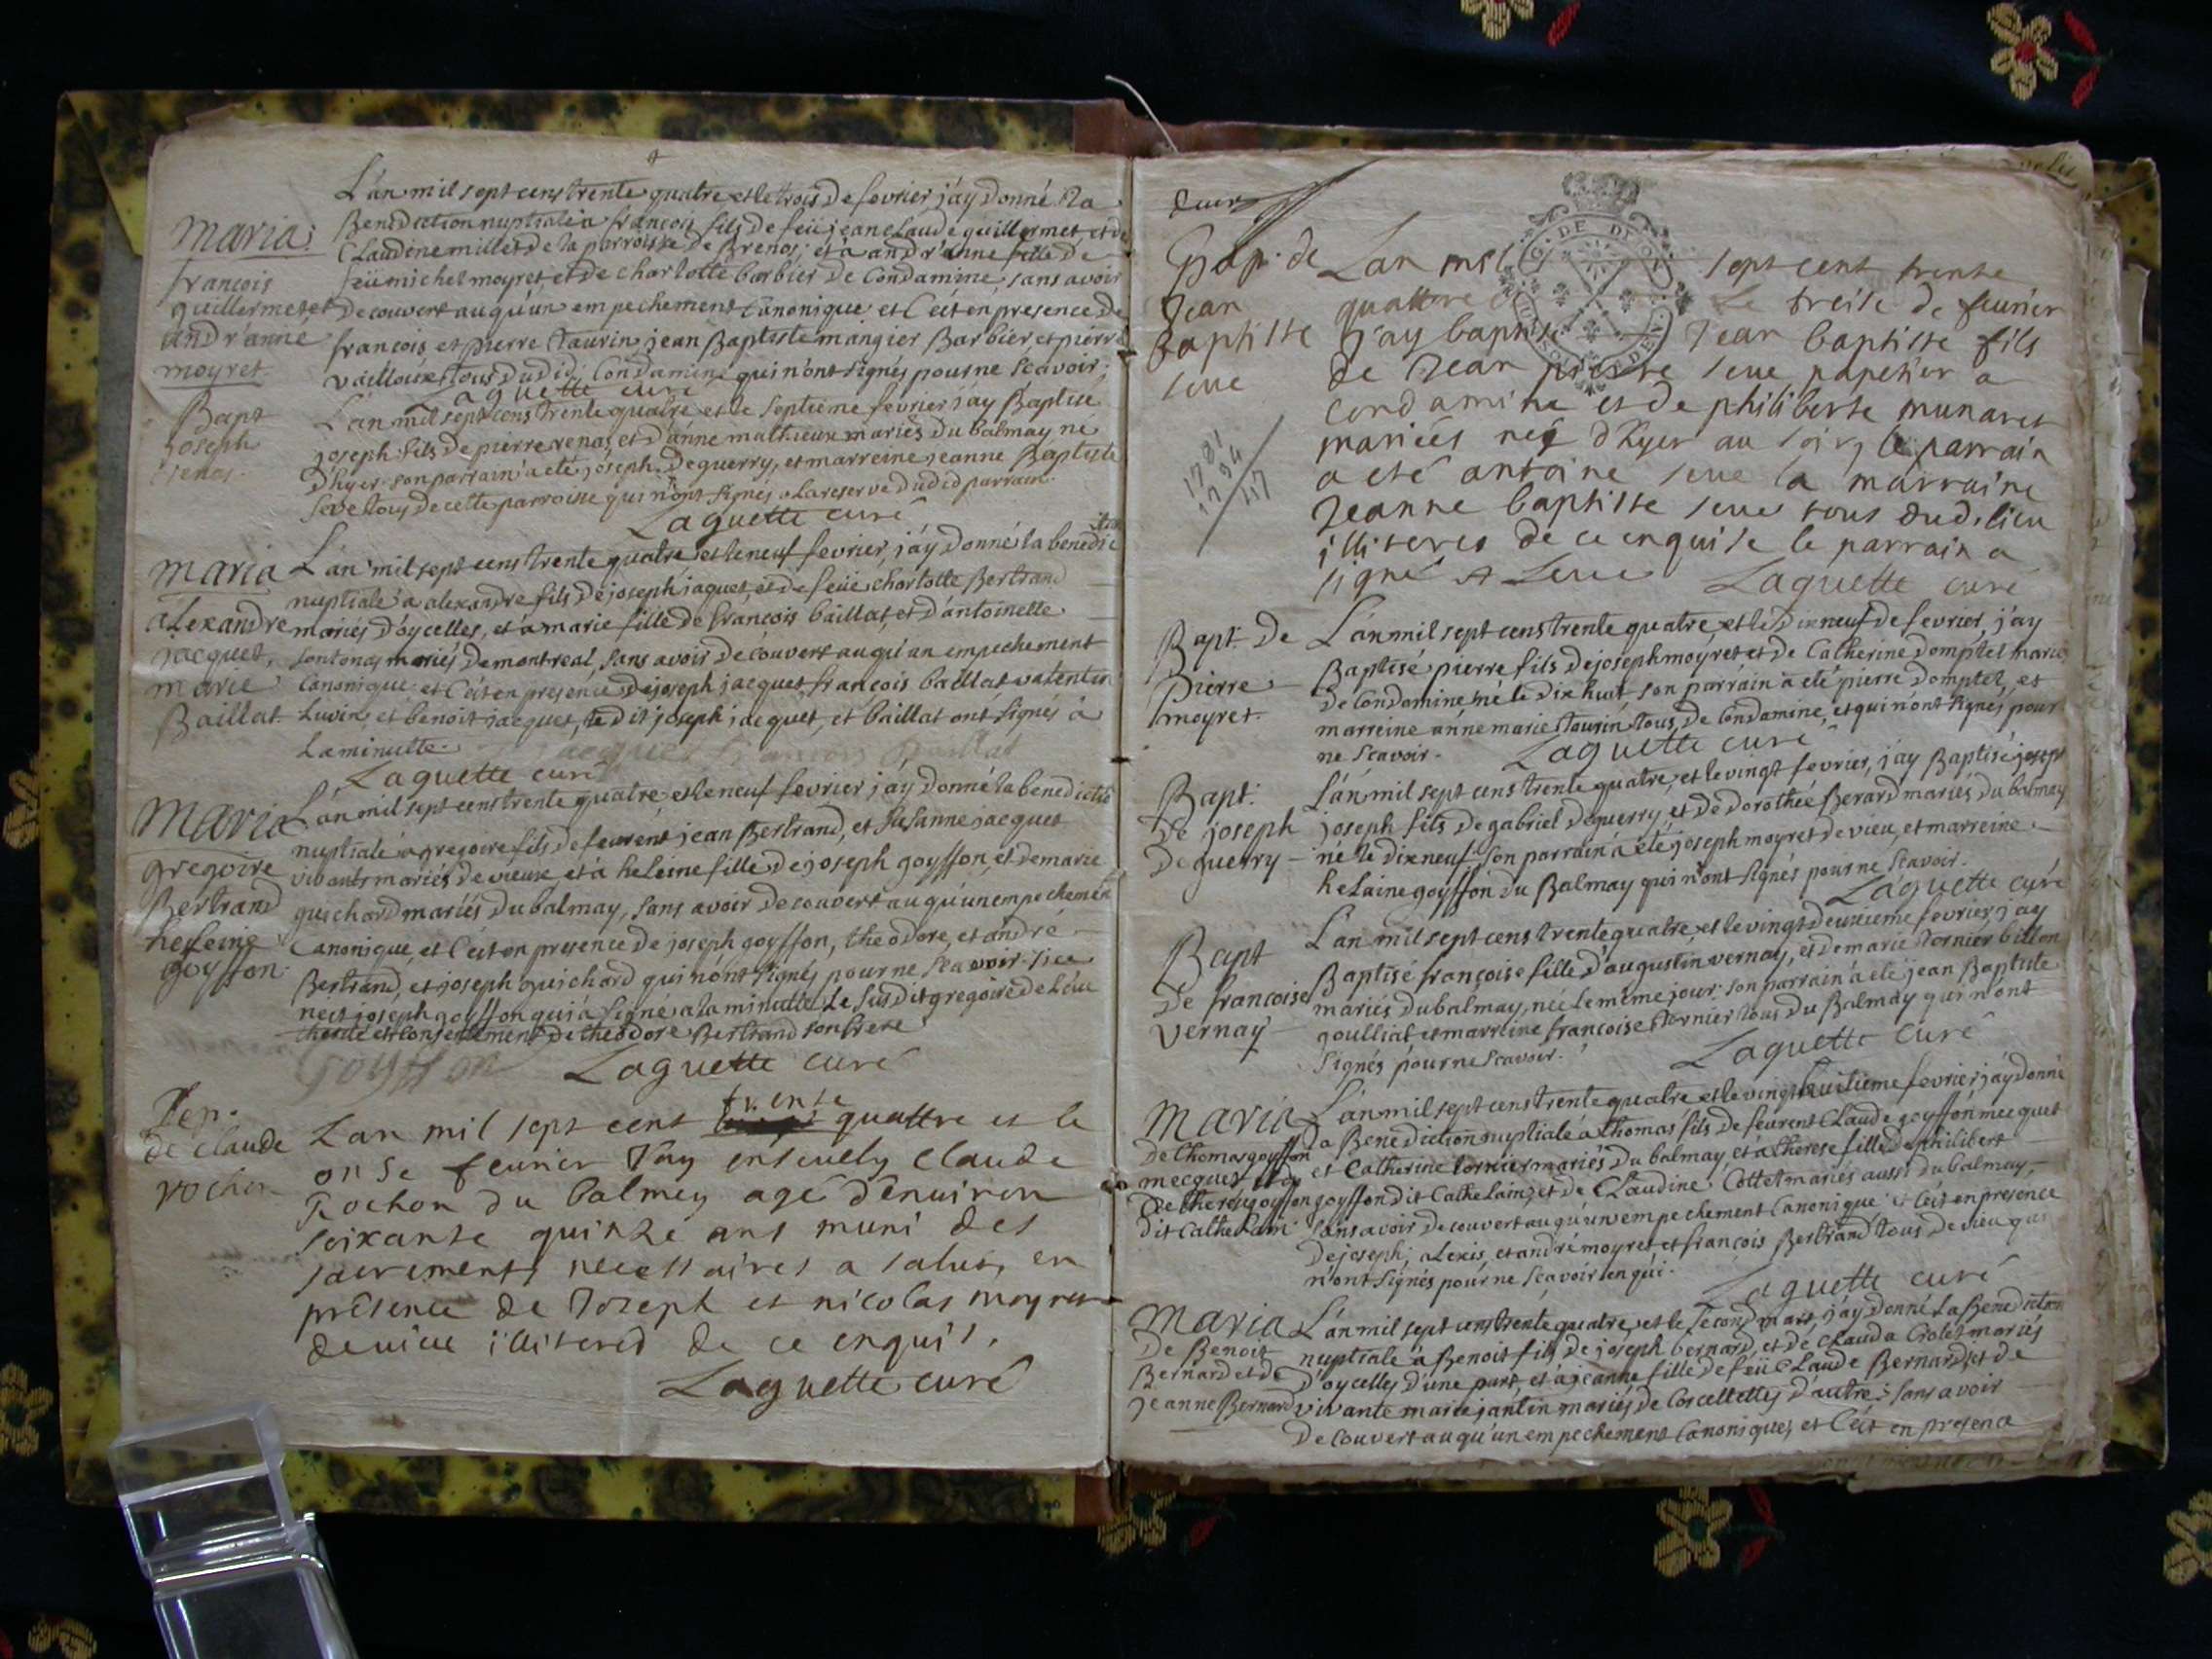 L'an mil sept cens trente quatre et le trois de fevrier j'ay donné la
Benediction nuptiale a françois fils de feü jean claude guillermet, et de
Claudine millet de la parroisse de Brenos; et à andr'anne fille de
feü michel moyret, et de charlotte barbier de Condamine sans avoir
decouvert auqu'un empechement Canonique et C'eit en presence de
françois et pierre Taurin jean Baptiste mangier Barbier et pierre
vailloux tous dudid. Condamine qui n'ont signés pour ne scavoir.
Laguette curé
Maria:
francois
guillermet et
andr'anne
moyret
L'an mil sept cens trente quatre et le septieme fevrier j'ay Baptisé
joseph fils de pierre venas et d'anne mathieux mariés du balmay né
d'hyer. son parrain a eté joseph Deguerry, et marreine jeanne Baptiste
seve tous de cette parroisse qui n'ont signés a la reserve dudid parrain.
Laguette curé
Bapt
joseph
venas.
L'an mil sept cens trente quatre et le neuf fevrier, j'ay donné la benedic
nuptiale a alexandre fils de joseph jaquet, et de feüe charlotte Bertrand
mariés d'oycelles, et à marie fille de françois baillat, et d'antoinette
sontonas mariés de montreal sans avoir decouvert auqu'un empechement
Canonique et C'eit en presence de joseph jacquet françois baillat valentin
Luvin, et benoit jacquet, le dit joseph jacquet, et baillat ont signés à
la minutte.
Laguette curé
Maria
alexandre
jacquet,
marie
Baillat
L'an mil sept cens trente quatre et le neuf fevrier j'ay donné la benedictio
nuptiale a gregoire fils de feurent jean Bertrand, et susanne jacquet
vivants mariés de vieux et à heleine fille de joseph goyffon, et de marie
guichard mariés du balmay, sans avoir decouvert auqu'un empechement
Canonique, et C'eit en presence de joseph goyffon, theodore, et andré
Bertrand, et joseph guichard qui n'ont signés pour ne scavoir si ce
n'eit joseph goyffon qui a signé a la minutte Le susdit gregoire de L'au
thorité et consentement de theodore Bertrand son frere
goyffon Laguette curé
Maria
gregoire
Bertrand
heleine
goyffon.
trente
Lan mil sept cent quattre et le
onse feurier Jay enseuely Claude
Rochon du balmey agé d'enuiron
soixante quinze ans muni des
sacrements necessaires a salut, en
présence de Joseph et nicolas moyret
de vieu illiterés de ce enquis.
Laguette curé
Sep.
de claude
rochon
Bap. de
Jean
Baptiste
seue
Lan mil sept cent trente
quattre et le treise de feurier
j'ay baptisé Jean baptiste fils
de Jean pierre seue papetier a
condamine et de philiberte munaret
mariés né d'hyer au soir, le parrain
a eté antoine seue la marraine
Jeanne baptiste seue tous dud. lieu
illiterés de ce enquise le parrain a
signé A Seue Laguette curé
1781
1734
47
Bapt. De
Pierre
moyret.
L'an mil sept cens trente quatre, et le dix neuf de fevrier, j'ay
Baptisé pierre fils de joseph moyret et de Catherine domptet mariés
de Condamine né le dix huit, son parrain a eté pierre domptet, et
marreine anne marie Taurin tous de Condamine, et qui n'ont signés pour
ne scavoir. Laguette curé
Bapt.
De joseph
Deguerry
L'an mil sept cens trente quatre, et le vingt fevrier, j'ay Baptisé joseph
joseph fils de gabriel deguerry, et de dorothée Berard mariés du balmay
né le dix neuf. son parrain a eté joseph moyret de vieu, et marreine
helaine goyffon du Balmay qui n'ont signés pour ne scavoir.
Laguette curé
Bapt
De francoise
vernay
L'an mil sept cens trente quatre, et le vingt deuxieme fevrier j'ay
Baptisé françoise fille d'augustin vernay, et de marie Tornier billon
mariés du balmay, née le même jour: son parrain a eté jean Baptiste
goulliat et marreine françoise Tornier tous du Balmay qui n'ont
signés pour ne scavoir.
Laguette curé
Maria
De Thomas goyffon
mecquet et de
De therese goyffon
dit Cathelain
L'an mil sept cens trente quatre et le vingt huitieme fevrier, j'ay donné
la Benediction nuptiale à thomas fils de feurent Claude goyffon mecquet
et Catherine tornier mariés du balmay et à therese fille de philibert
goyffon dit Cathelain, et de Claudine Cottet mariés aussi du balmay,
sans avoir decouvert auqu'un empechement Canonique et C'eit en presence
de joseph, alexis, et andré moyret et françois Bertrand tous de vieu qui
n'ont signés pour ne scavoir enqui.
Laguette curé
Maria
De Benoit
Bernard et de
jeanne Bernard
L'an mil sept cens trente quatre, et le second mars, j'ay donné La Benediction
nuptiale à Benoit fils de joseph bernard, et de clauda Crolet mariés
d'oycelles d'une part, et à jeanne fille de feü Claude Bernard, et de
vivante marie jantin mariés de Coscellettes d'autre: sans avoir
decouvert auqu'un empechement Canonique, et C'eit en presence